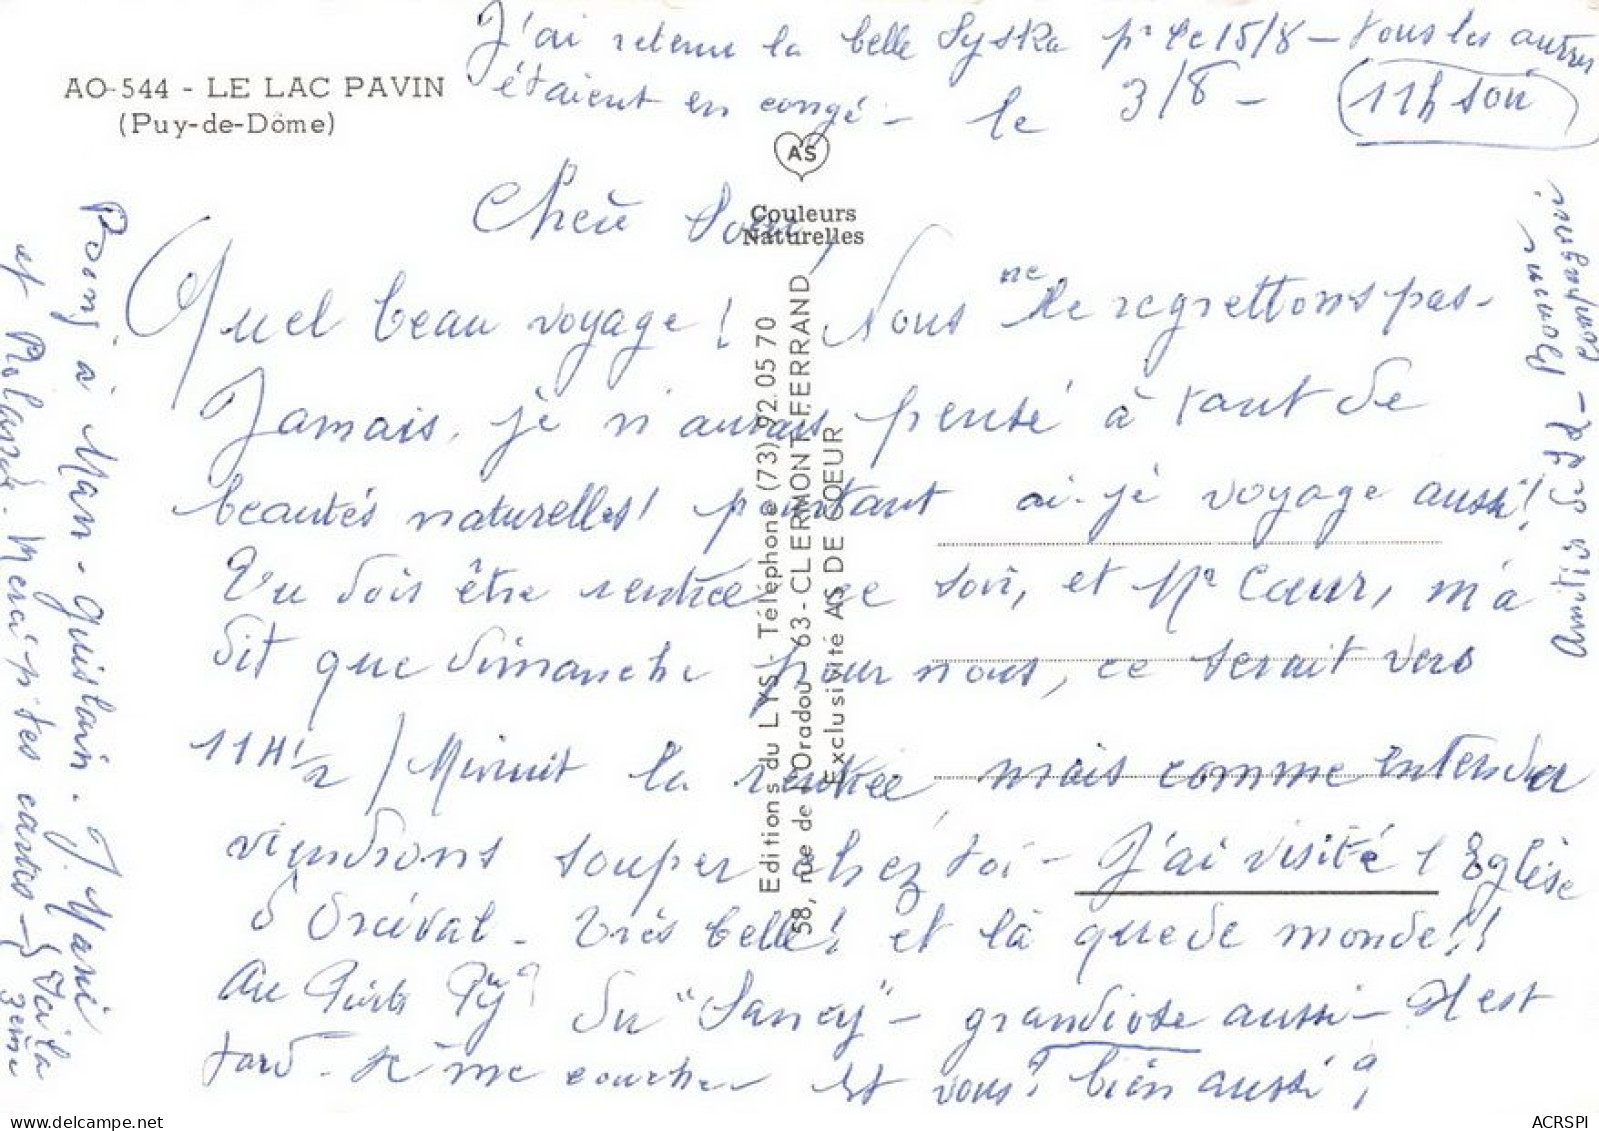 J'ai retenu la belle Syska pr le 15/8 - tous les autres
étaient en congé - le 3/8 - 11h soir
AO-544 - LE LAC PAVIN
(Puy-de-Dôme)
AS
Couleurs
Naturelles
Chère Soeur,
Quel beau voyage! Nous ne le regrettons pas -
Jamais, je n'aurais pensé à tant de
beautés naturelles! pourtant ai-je voyagé aussi!
Tu dois être rentrée ce soir, et Mr Cœur, m'a
dit que dimanche pour nous, ce serait vers
11H 1/2 / Minuit la rentrée, mais comme entendu
viendrons souper chez toi - J'ai visité l'Eglise
d'Orcival - très belle! et là que de monde!!
Au Puy du "Sancy" - grandiose aussi - Il est
tard - Je me coucher et vous? bien aussi?
Editions du LYS - Téléphone (73) 92.05 70
58, rue de l'Oradou 63 - CLERMONT-FERRAND
Exclusivité AS DE COEUR
à Man - Guislain - J. Mani
et Rolande. Merci pr tes cartes - J'ai la
3ème
Amitiés de
ACRSPI